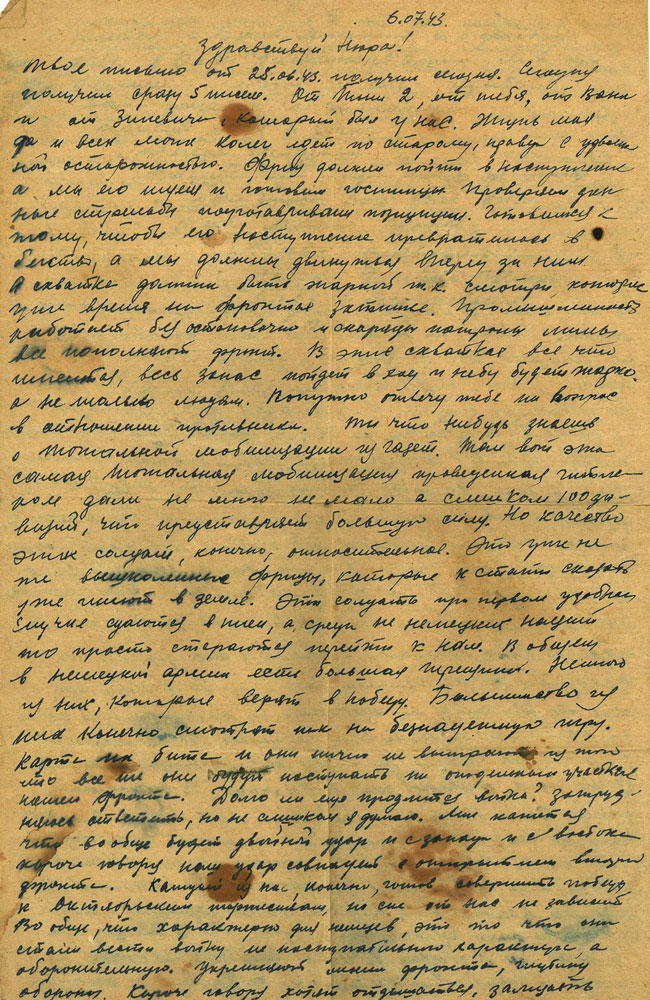 6.07.43.
Здравствуй Нюра!
Твое письмо от 25.06.43. получил сегодня. Сегодня
получил сразу 5 писем. От Тони 2, от тебя, от Вани
и от Зиневича, который был у нас. Жизнь моя
да и всех моих колег идет по старому, правда с удвоен
ной осторожностью. Фриц должен пойти в наступление
а мы его ищем и готовим гостинцы. Проверяем
ные стрельбы подготавливаем позиции. Готовимся к
тому, чтобы его наступление превратилось в
бегство, а мы должны двинуться вперед за ним
А схватка должна быть жаркой т.к. смотри, которое
уже время на фронтах затишье. Промышленность
работает без остановочно и снаряды патроны мины
все пополняют фронт. В этих схватках все что
имеется, весь запас пойдет в ход и небу будет жарко.
а не только людям. Попутно отвечу тебе на вопрос
в отношении противника. Ты что нибудь знаешь
о тотальной мобилизации из газет. Так вот эта
самая тотальная мобилизация проведенная гитле-
ром дали не много не мало а слишком 100 ди-
визий, что представляет большую силу. Но качество
этих солдат, конечно, относительное. Это уже не
те вышколенные фрицы, которые к стати сказать
уже гниют в земле. Эти солдаты при первом удобном
случае сдаются в плен, а среди не немецких наций
то просто стараются перейти к нам. В общем
в немецкой армии есть большая трещина. Немного
из них, которые верят в победу. Большинство из
них конечно смотрят как на безнадежную игру.
Карта их бита и они ничего не выиграют из того
что все же они будут наступать на отдельных участках
нашего фронта. Долго ли еще продлится война? Затруд-
няюсь ответить, но не слишком я думаю. Мне кажется
что вообще будет двойной удар и с запада и с востока
короче говоря наш удар совпадет с открытием второго
фронта. Каждый из нас конечно, готов совершить победу
к Октябрьским торжествам, но это от нас не зависит
Во общем, что характерно для немцев, это то что они
стали вести войну не наступательного характера, а
оборонительную. Укрепляют линии фронта, глубину
обороны. Короче говоря хотят отдышаться, зализать